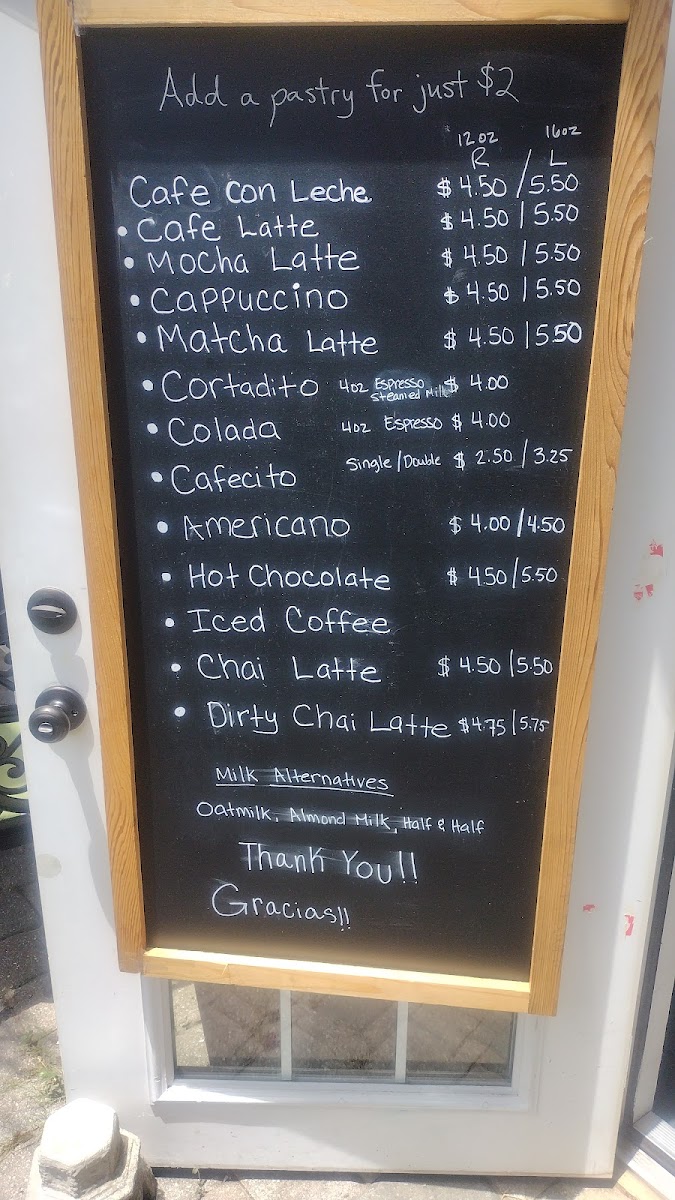 Add a pastry for just $2
12oz 16oz
R / L
Cafe con Leche $ 4.50 / 5.50
• Cafe Latte $ 4.50 | 5.50
• Mocha Latte $ 4.50 | 5.50
• Cappuccino $ 4.50 | 5.50
• Matcha Latte $ 4.50 | 5.50
• Cortadito 4oz Espresso Steamed Milk $ 4.00
• Colada 4oz Espresso $ 4.00
• Cafecito Single/Double $ 2.50 / 3.25
• Americano $ 4.00 / 4.50
• Hot Chocolate $ 4.50 / 5.50
• Iced Coffee
• Chai Latte $ 4.50 | 5.50
• Dirty Chai Latte $4.75 | 5.75
Milk Alternatives
Oatmilk, Almond Milk, Half & Half
Thank You!!
Gracias!!